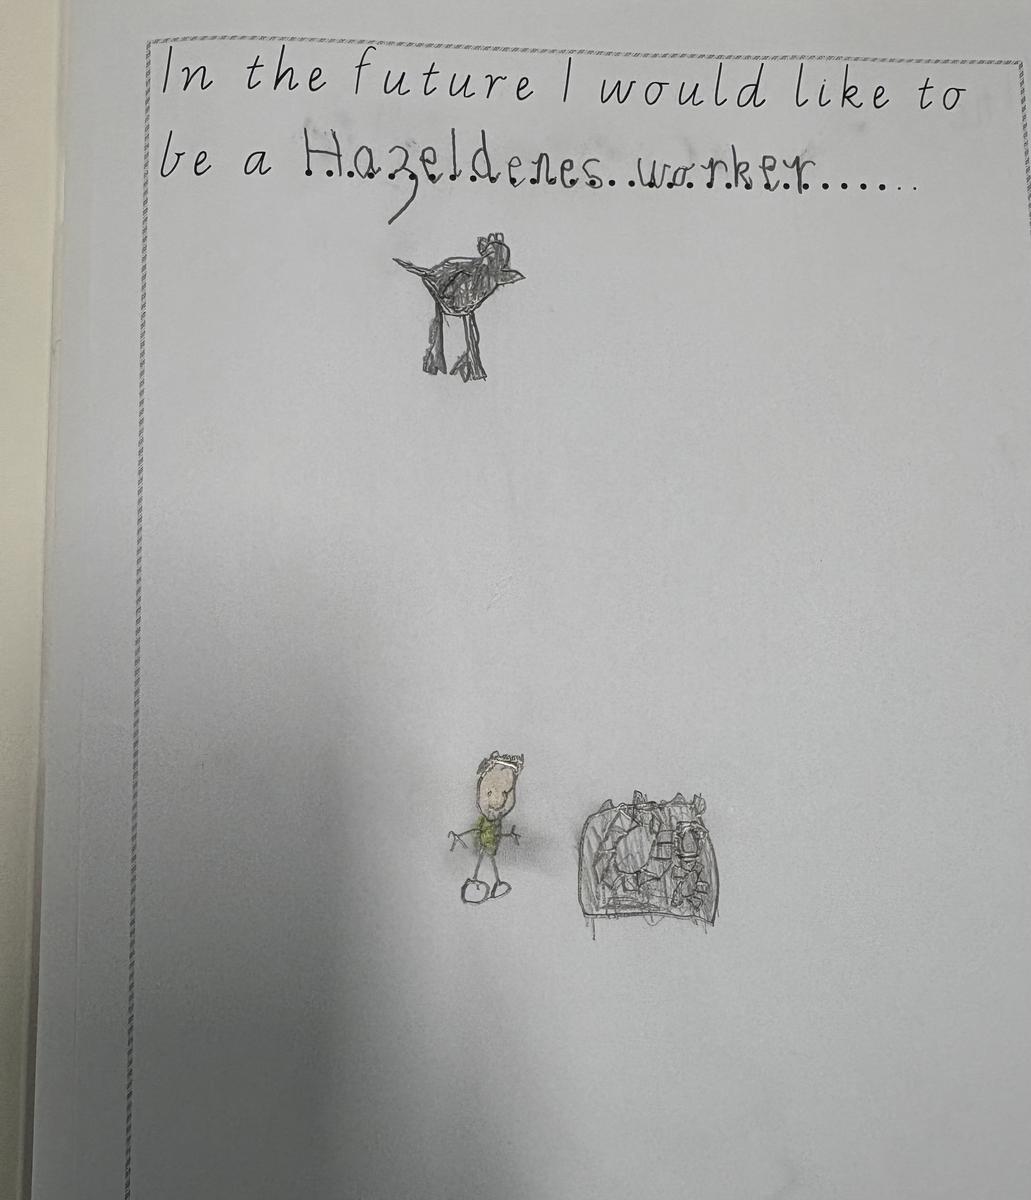 In the future I would like to
be a Hazeldenes..worker......